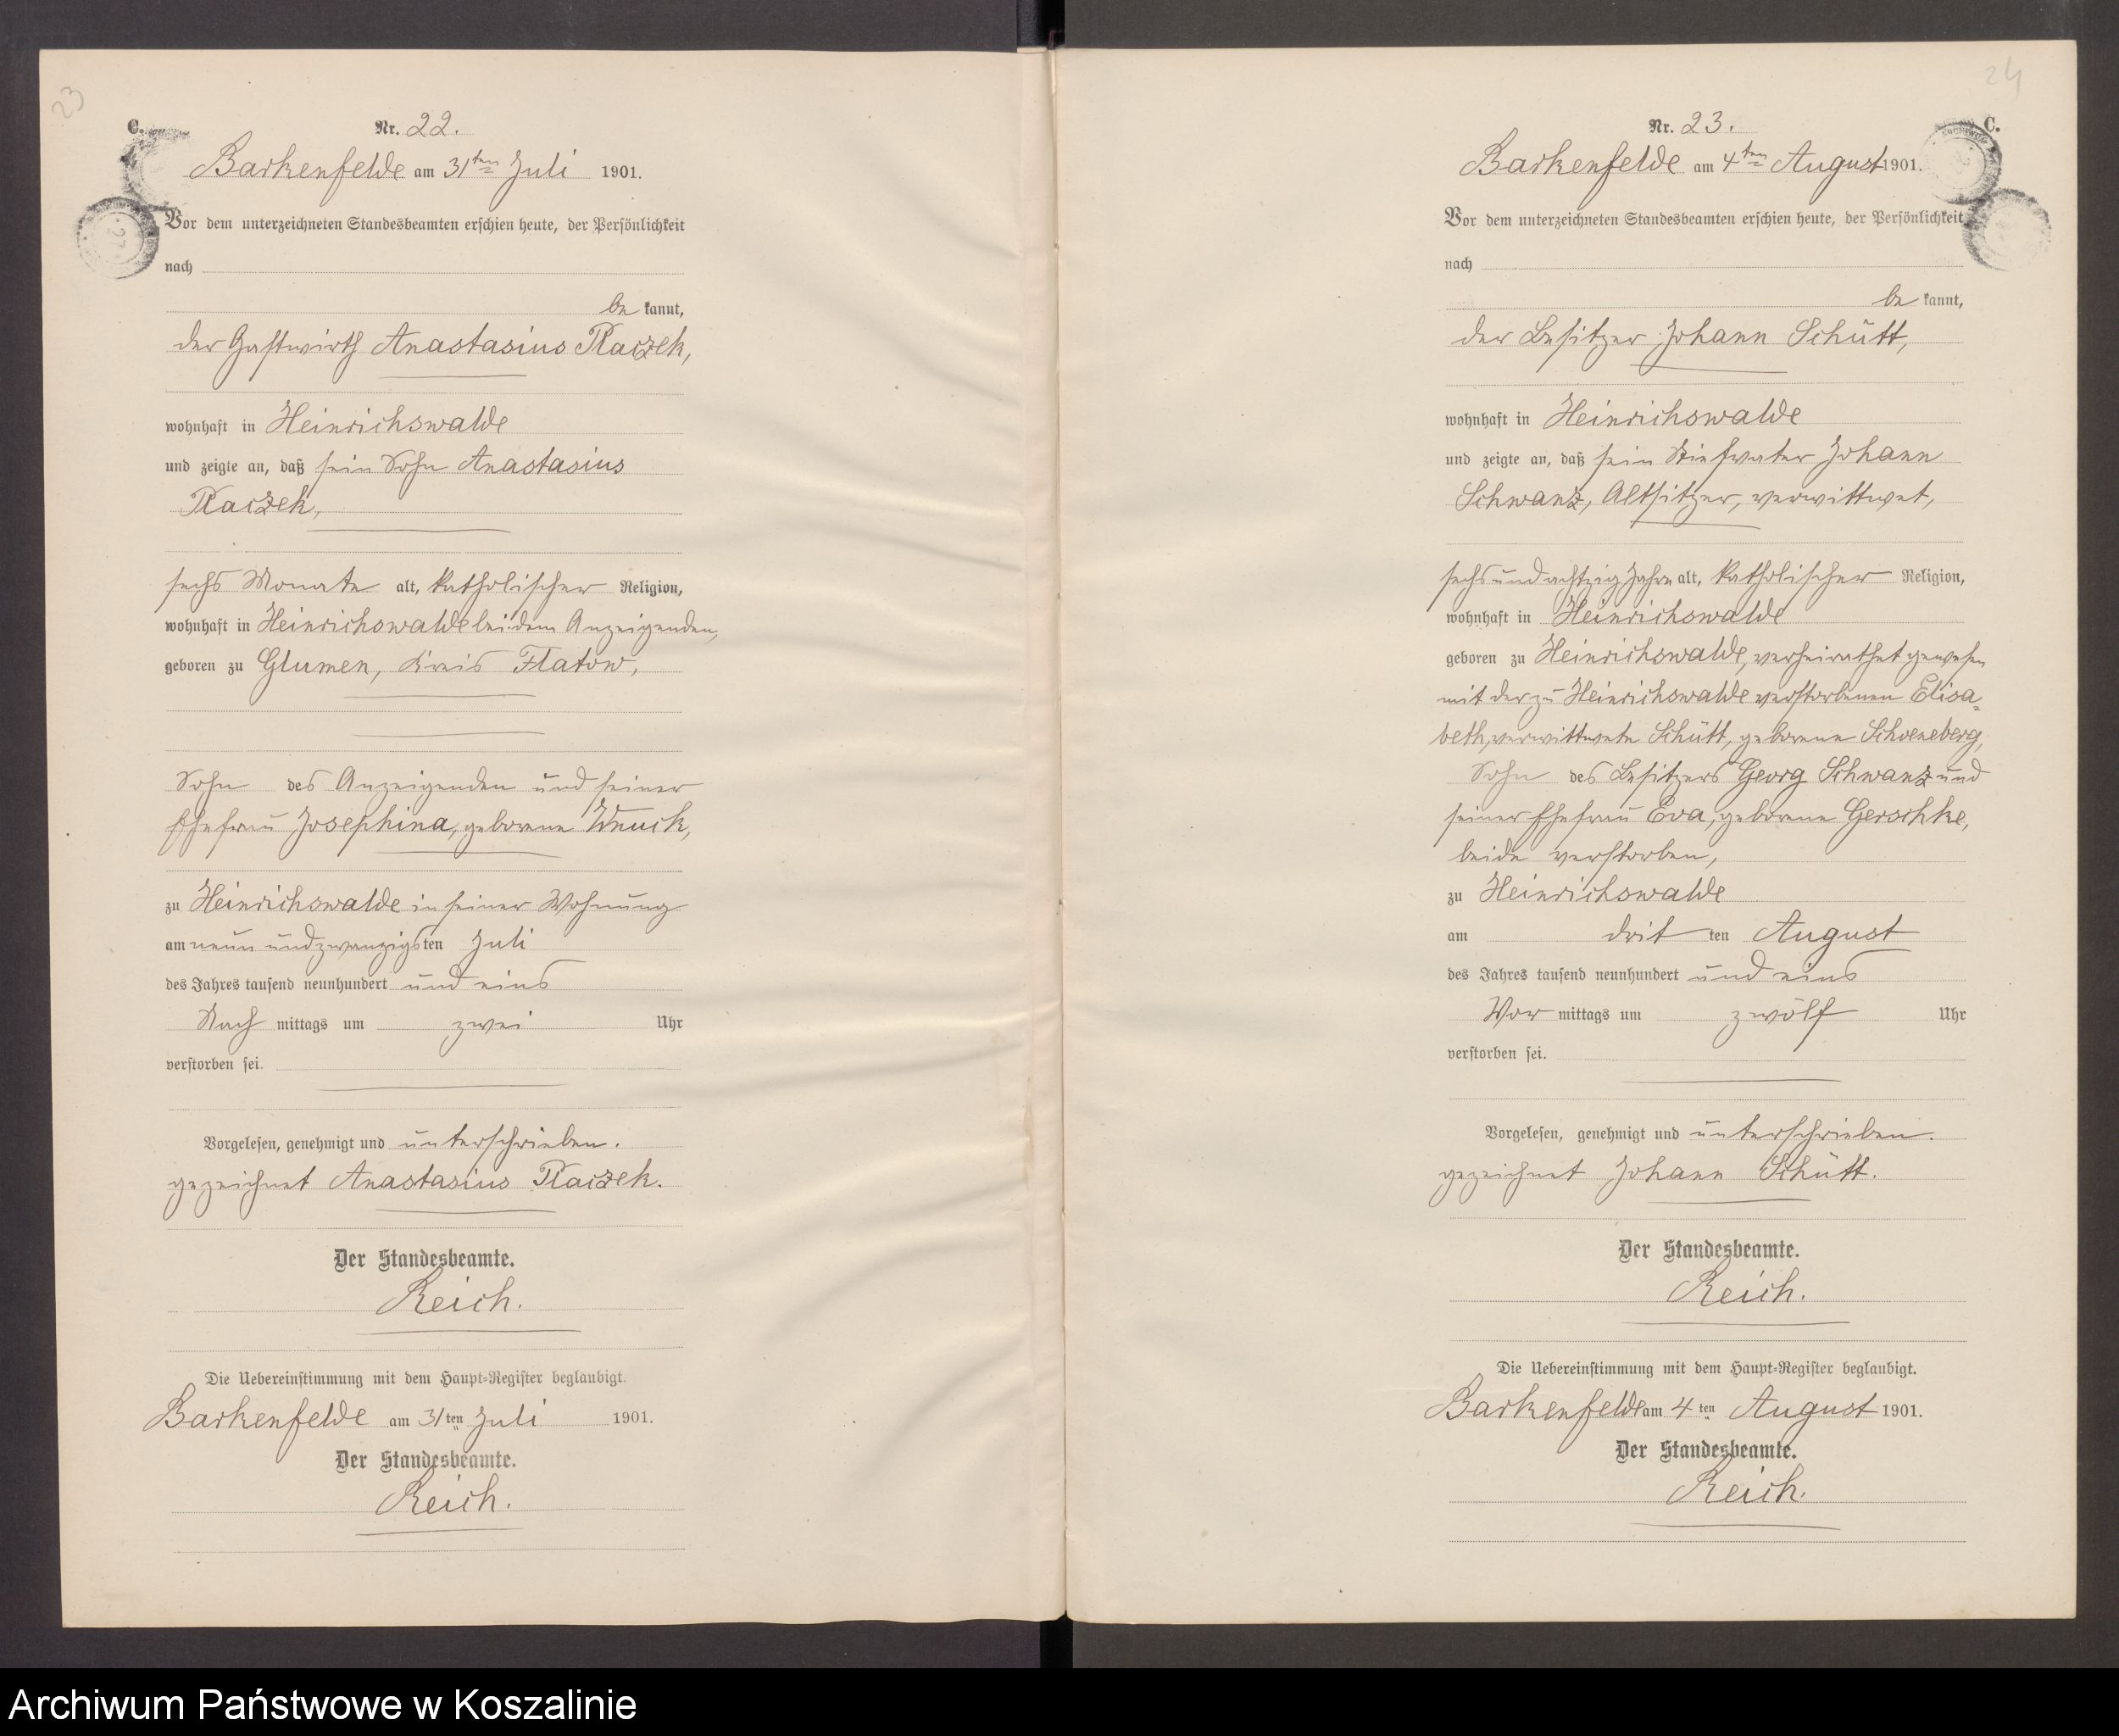 23
C.
Nr. 22.
Barkenfelde am 31ten Juli 1901.
Vor dem unterzeichneten Standesbeamten erschien heute, der Persönlichkeit
nach
be kannt,
der Gastwirth Anastasius Raczek,
wohnhaft in Heinrichswalde
und zeigte an, daß sein Sohn Anastasius
Raczek,
sechs Monate alt, katholischer Religion,
wohnhaft in Heinrichswalde bei dem Anzeigenden,
geboren zu Glumen, Kreis Flatow,
Sohn des Anzeigenden und seiner
Ehefrau Josephina, geborene Wnuck,
zu Heinrichswalde in seiner Wohnung
am neun und zwanzigsten Juli
des Jahres tausend neunhundert und eins
Nach mittags um zwei Uhr
verstorben sei.
Vorgelesen, genehmigt und unterschrieben.
gezeichnet Anastasius Raczek.
Der Standesbeamte.
Reich.
Die Uebereinstimmung mit dem Haupt-Register beglaubigt.
Barkenfelde am 31ten Juli 1901.
Der Standesbeamte.
Reich.
24
C.
Nr. 23.
Barkenfelde am 4ten August 1901.
Vor dem unterzeichneten Standesbeamten erschien heute, der Persönlichkeit
nach
be kannt,
der Besitzer Johann Schütt,
wohnhaft in Heinrichswalde
und zeigte an, daß sein Stiefvater Johann
Schwanz, Altsitzer, verwittwet,
sechsundachtzig Jahre alt, katholischer Religion,
wohnhaft in Heinrichswalde
geboren zu Heinrichswalde, verheirathet gewesen
mit der zu Heinrichswalde verstorbenen Elisa-
beth, verwittwete Schütt, geborene Schoeneberg,
Sohn des Besitzers Georg Schwanz und
seiner Ehefrau Eva, geborene Gerschke,
beide verstorben,
zu Heinrichswalde
am drit ten August
des Jahres tausend neunhundert und eins
Vor mittags um zwölf Uhr
verstorben sei.
Vorgelesen, genehmigt und unterschrieben.
gezeichnet Johann Schütt.
Der Standesbeamte.
Reich.
Die Uebereinstimmung mit dem Haupt-Register beglaubigt.
Barkenfelde am 4ten August 1901.
Der Standesbeamte.
Reich.
Archiwum Państwowe w Koszalinie